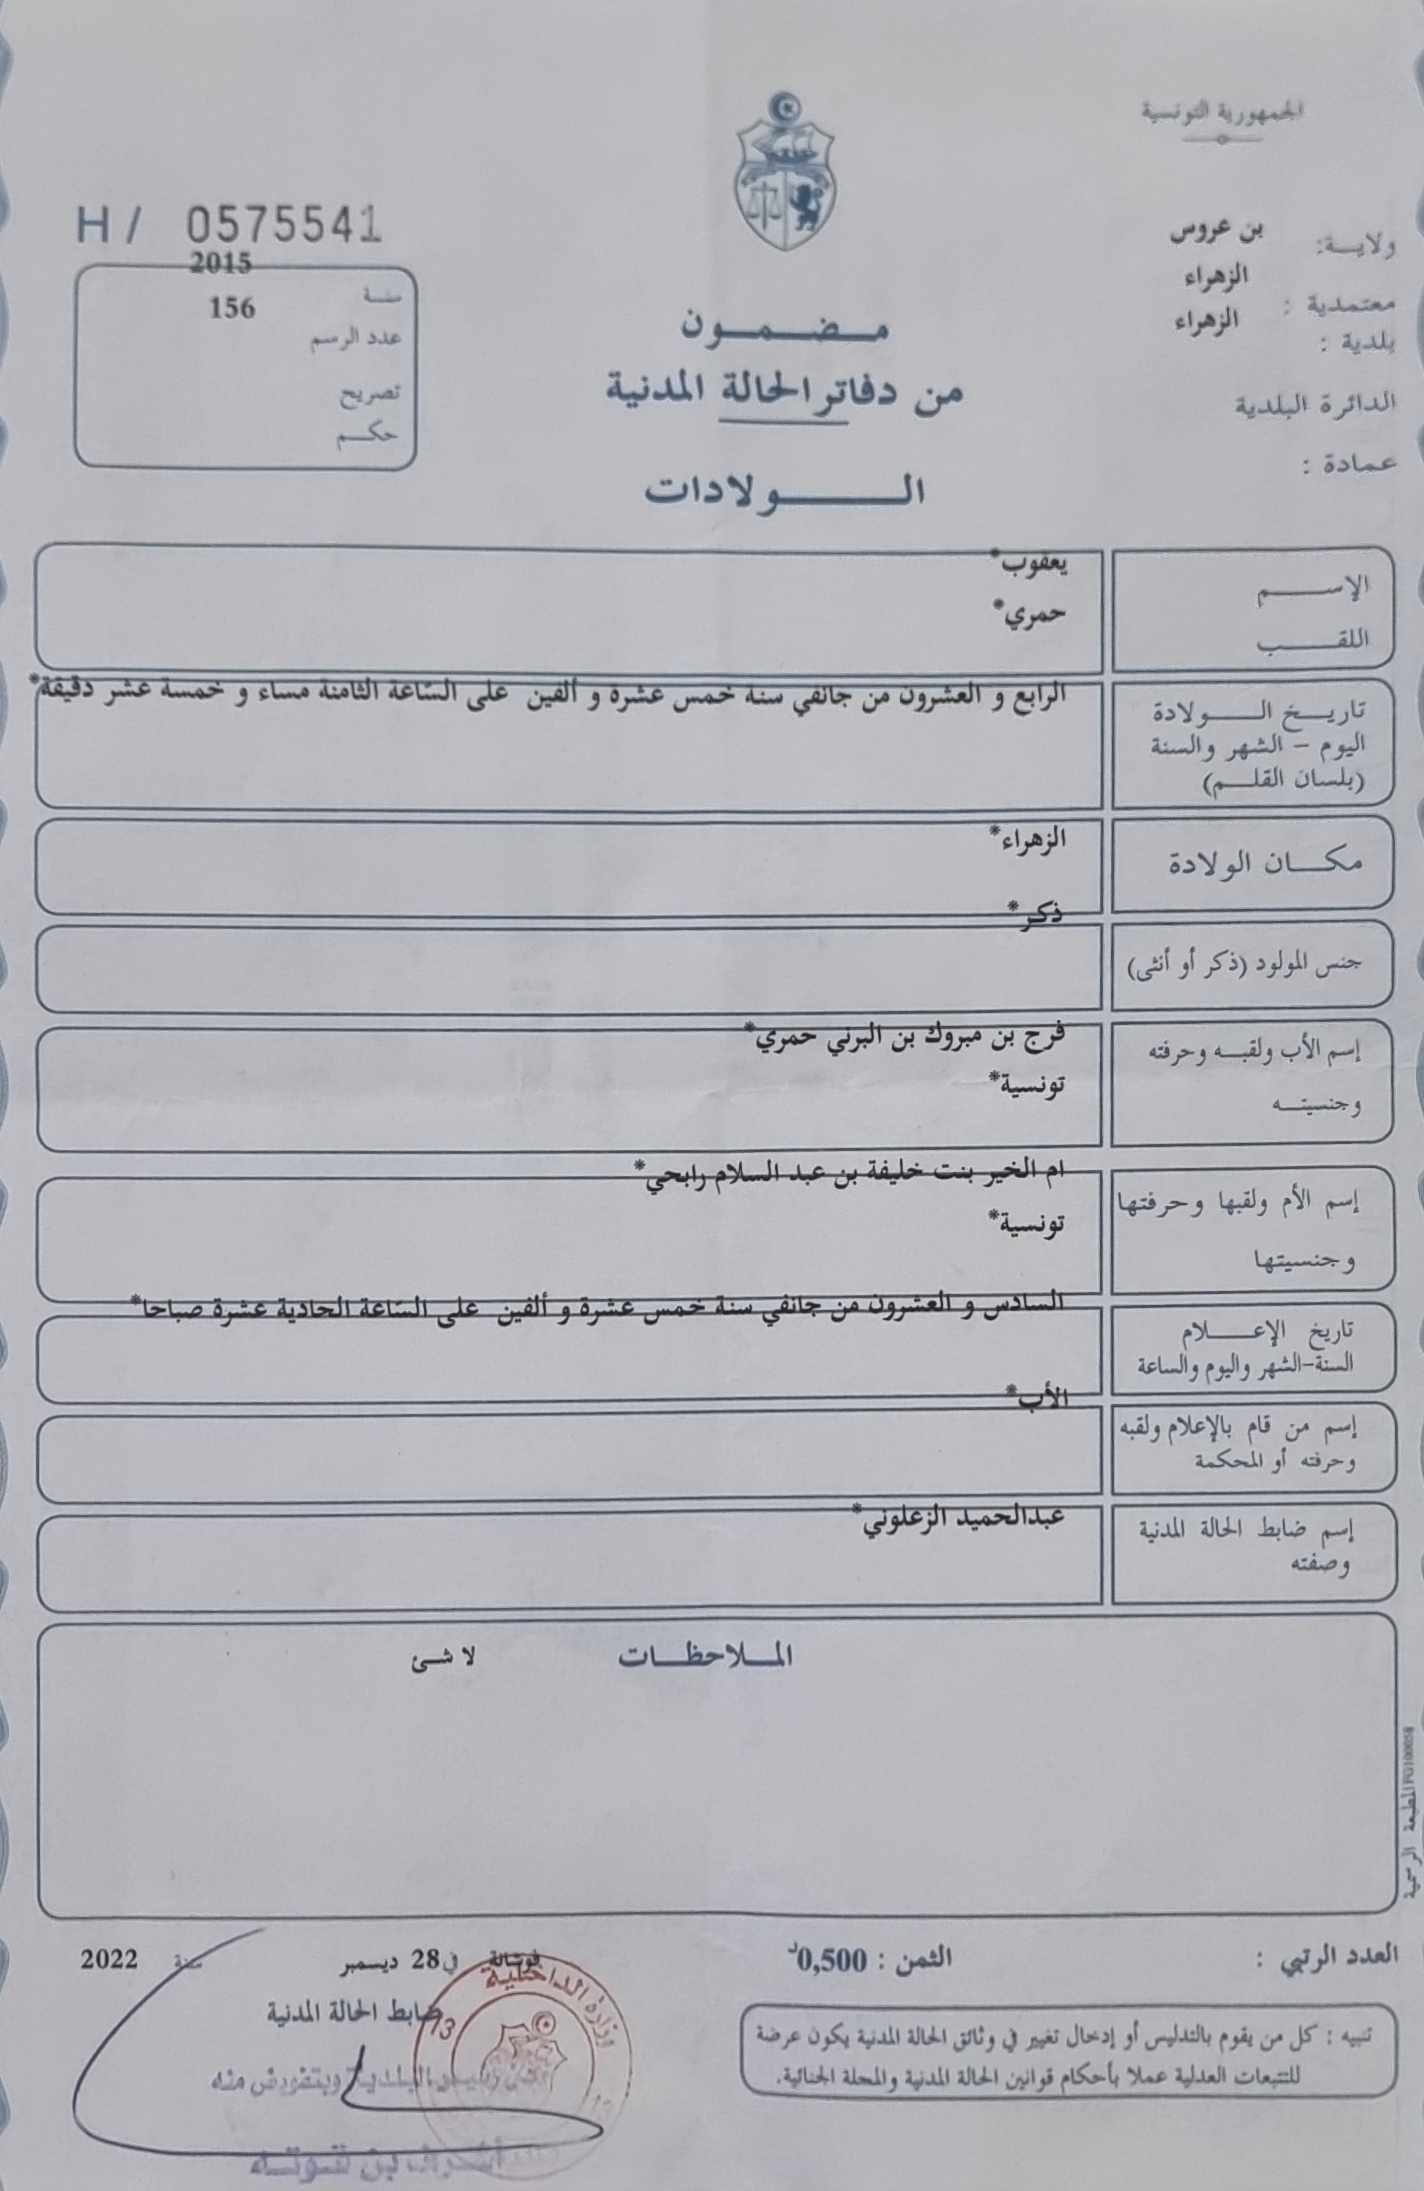 الجمهورية التونسية
ولايــة: بن عروس
معتمدية : الزهراء
بلدية : الزهراء
الدائرة البلدية
عمادة :
H / 0575541
سنـة 2015
عدد الرسم 156
تصريح
حكـم
مـضـمـون
من دفاتر الحالة المدنية
الـــولادات
الإســـم يعقوب*
اللقـــب حمري*
تاريـخ الـــولادة الرابع و العشرون من جانفي سنة خمس عشرة و ألفين على السّاعة الثامنة مساء و خمسة عشر دقيقة*
اليوم – الشهر والسنة
(بلسان القلـم)
مكــان الولادة الزهراء*
جنس المولود (ذكر أو أنثى) ذكر*
إسم الأب ولقبـه وحرفته فرج بن مبروك بن البرني حمري*
وجنسيتـه تونسية*
إسم الأم ولقبها وحرفتها ام الخير بنت خليفة بن عبد السلام رابحي*
وجنسيتها تونسية*
تاريخ الإعــلام السادس و العشرون من جانفي سنة خمس عشرة و ألفين على السّاعة الحادية عشرة صباحا*
السنة-الشهر واليوم والساعة
إسم من قام بالإعلام ولقبه الأب*
وحرفته أو المحكمة
إسم ضابط الحالة المدنية عبدالحميد الزعلوني*
وصفته
المــلاحظــات لا شئ
المطبعة الرسمية
العدد الرتبي :
الثمن : 0,500د
فوشانة في 28 ديسمبر سنة 2022
ضابط الحالة المدنية
وزارة الداخلية
13
البلدية وبتفويض منه
تنبيه : كل من يقوم بالتدليس أو إدخال تغيير في وثائق الحالة المدنية يكون عرضة
للتتبعات العدلية عملا بأحكام قوانين الحالة المدنية والمجلة الجنائية.